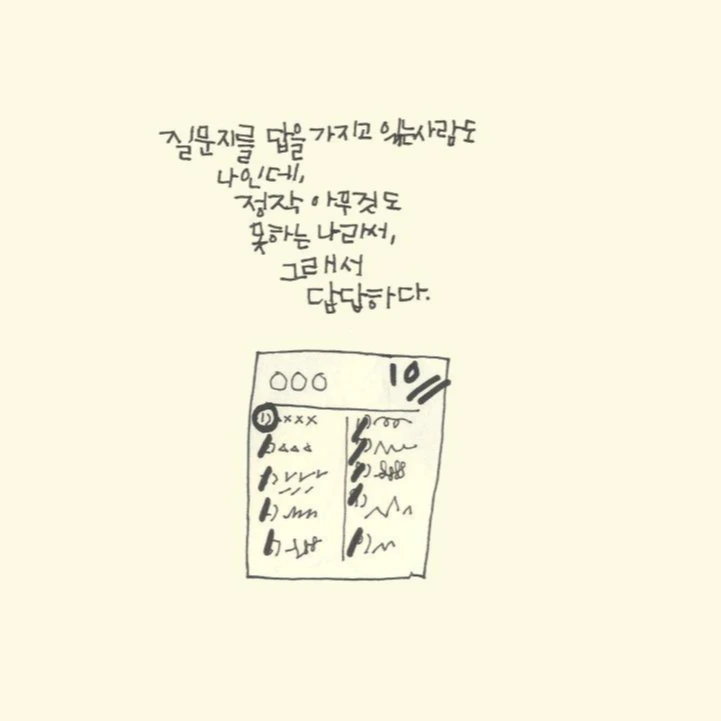 질문지를 답을 가지고 있는사람도
나인데,
정작 아무것도
못하는 나라서,
그래서
답답하다.
10
1)